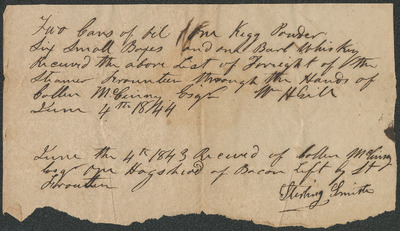 Two Cans of oil 1 one Kegg Powder
Six Small Boxes and one Barl Whiskey
Recived the above List of Freight of the
Steamer through the Hands of
Collin McKinney Esqr Wm H Gill
June 4th 1844
June the 4th 1843 Recived of Collin McKinney
Esqr one Hogshead of Bacon Left by St
Sterling Smith